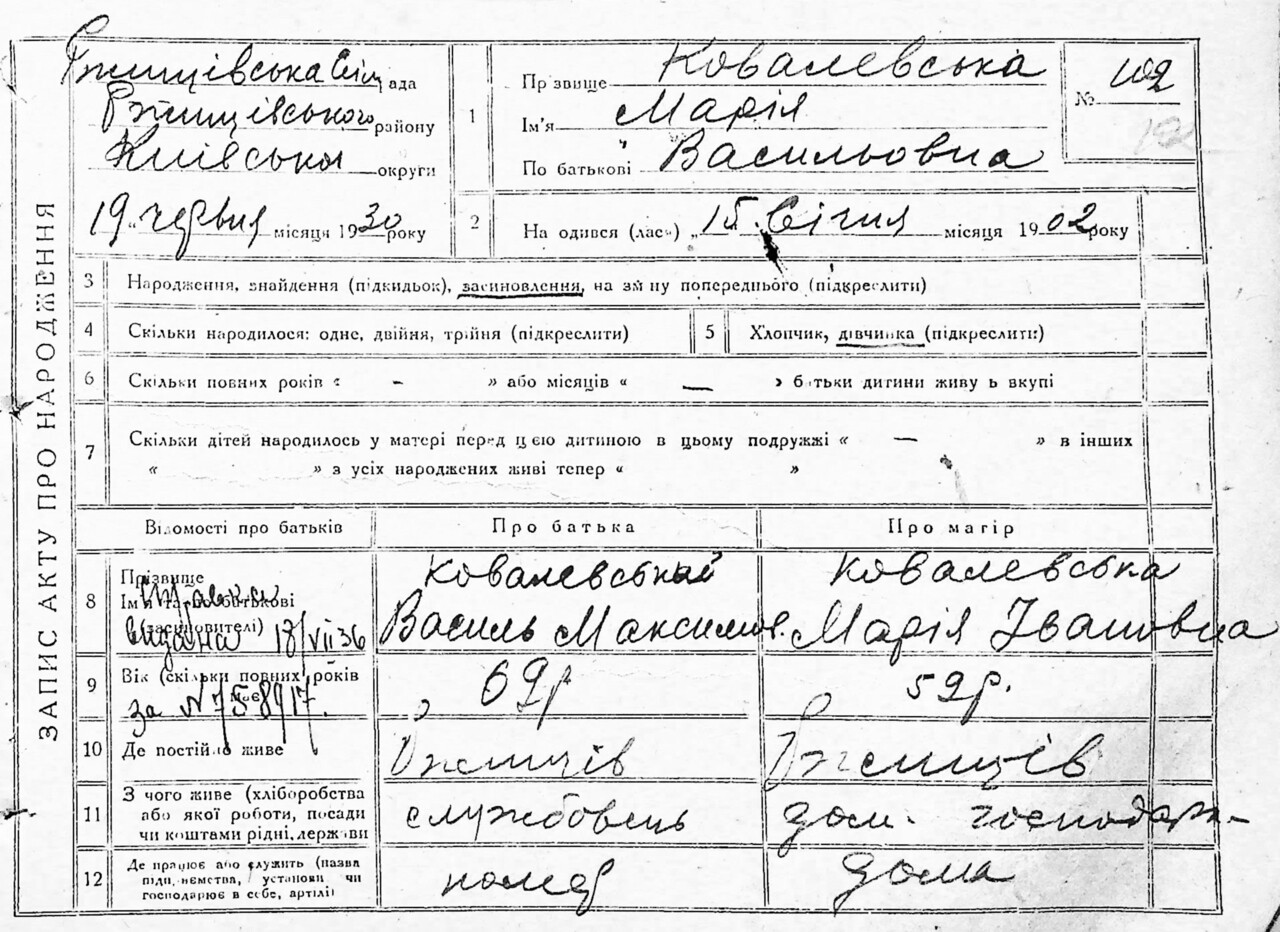 ЗАПИС АКТУ ПРО НАРОДЖЕННЯ
Ржищівська Сіл ада
Ржищівського району
Київської округи
19 „ червня місяця 1930 року
1
Пр звище Ковалевська
Ім'я Марія
По батькові Васильовна
№ 102
2
На одився (лась) „ 15 „ Січня місяця 1902 року
3 Народження, знайдення (підкидьок), засиновлення, на зміну попереднього (підкреслити)
4 Скільки народилося: одне, двійня, трійня (підкреслити)
5 Хлопчик, дівчинка (підкреслити)
6 Скільки повних років « - » або місяців « — » батьки дитини живу ь вкупі
7 Скільки дітей народилось у матері перед цією дитиною в цьому подружжі « — » в інших
« » з усіх народжених живі тепер « »
Відомості про батьків
Про батька
Про матір
8 Прізвище
Ім'я та по батькові
(засиновителі)
видана 18/VII 36
за N 758917.
Ковалевський
Василь Максимов.
Ковалевська
Марія Івановна
9 Вік (скільки повних років
має)
69 р
59 р.
10 Де постійно живе
Ржищів
Ржищів
11 З чого живе (хліборобства
або якої роботи, посади
чи коштами рідні, держави
службовець
дом. господарк-
12 Де працює або служить (назва
підприємства, установи чи
господарює в себе, артілі)
помер
дома